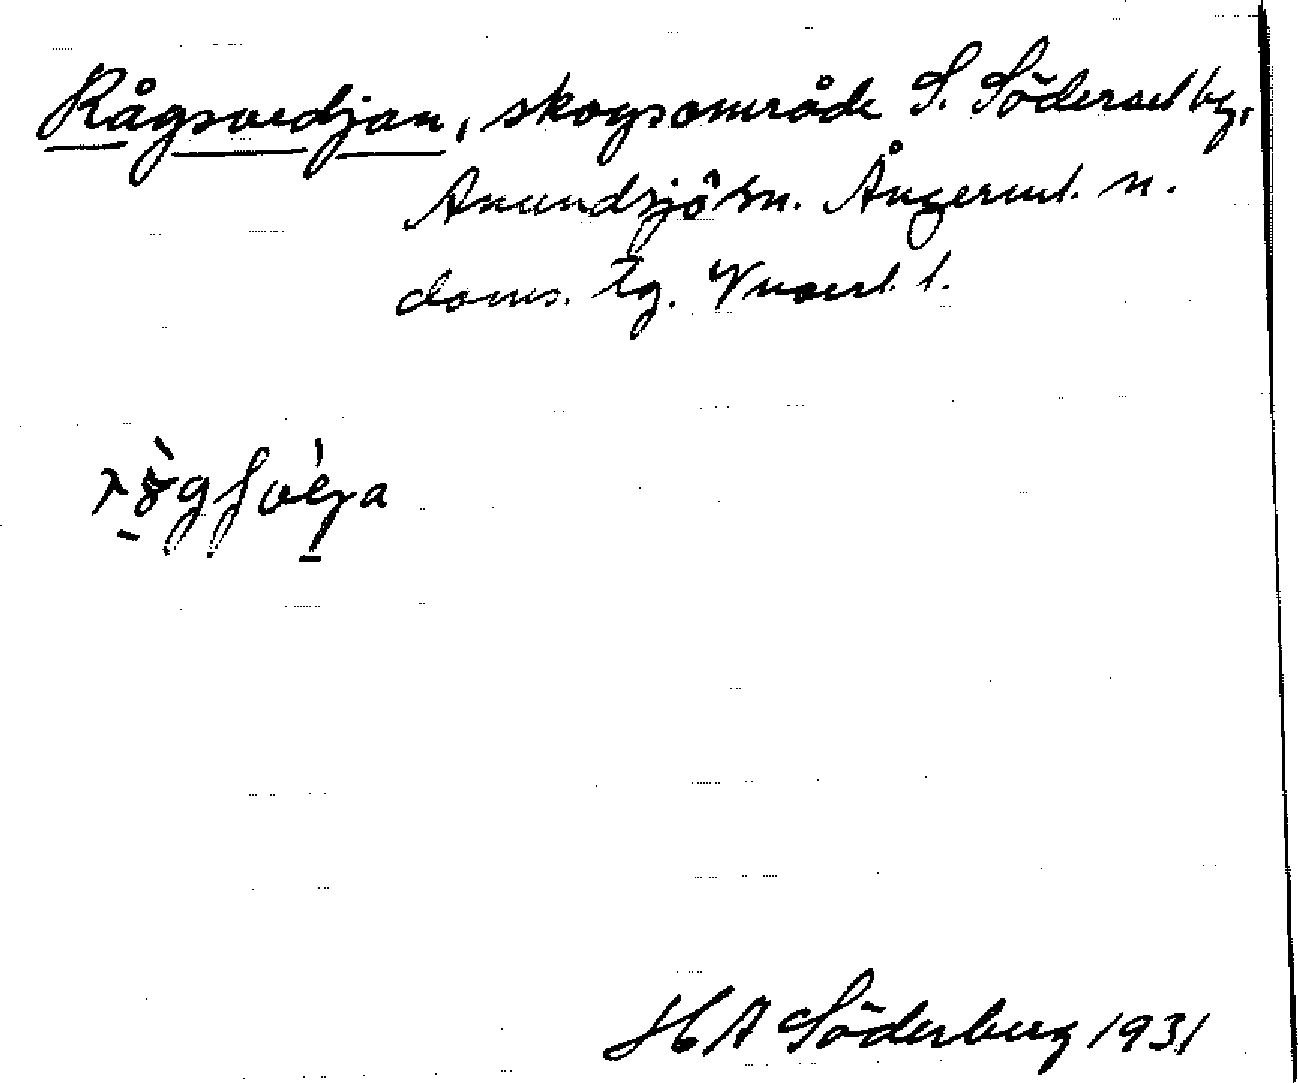 Rågsvedjan, skogsområde S. Södersel by,
Anundsjö sn. Ångerml. n.
doms. tg. Vnorrl. l.
H A Söderberg 1931